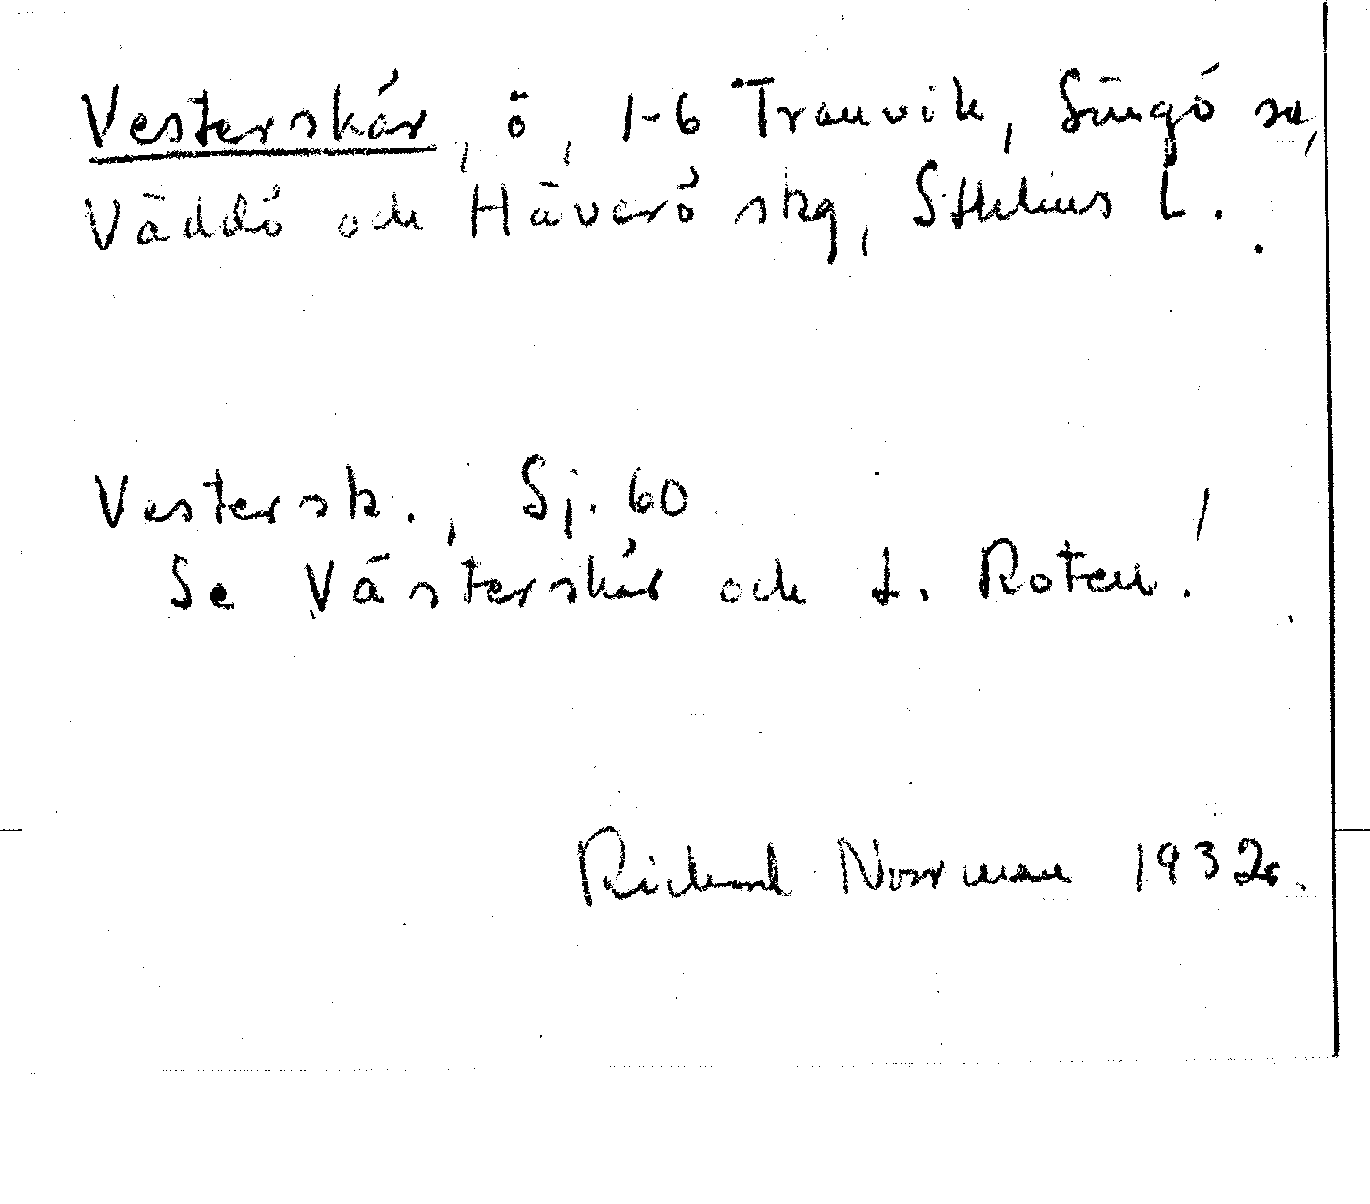 Vesterskär, ö, 1-6 Tranvik, Singö sn,
Väddö och Häverö skg, Sthlms L.
Vestersk., Sj. 60
Se Västerskär och L. Roten!
Richard Norrman 1932.